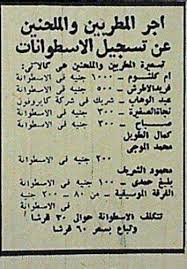 اجر المطربين والملحنين
عن تسجيل الاسطوانات
تسعيرة المطربين والملحنين هي كالآتي:
ام كلثوم - ١٠٠٠ جنيه في الاسطوانة
فريد الاطرش - ٥٠٠ جنيه في الاسطوانة
عبد الوهاب - شريك في شركة كايروفون
نجاة الصغيرة - ٣٠٠ جنيه في الاسطوانة
- ٣٠٠ جنيه في الاسطوانة
كمال الطويل
محمد الموجي
٣٠٠ جنيه في الاسطوانة
محمود الشريف
بليغ حمدي - ١٠٠ جنيه في الاسطوانة
الفرقة الموسيقية - من ٨٠ - ٢٠٠ جنيه
في الاسطوانة
تتكلف الاسطوانة حوالي ٣٠ قرشا
وتباع بسعر ٦٠ قرشا